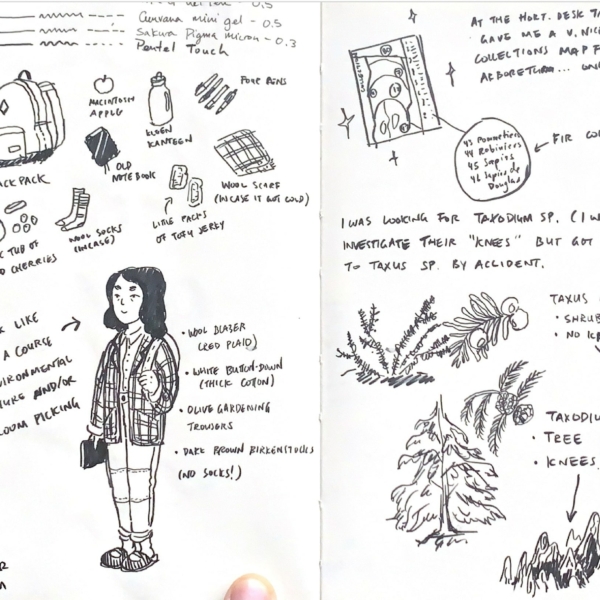 - 0.5
Curvana mini gel - 0.5
Sakura Pigma micron - 0.3
Pentel Touch
MACINTOSH
APPLE
KLEEN
KANTEEN
FOUR PENS
OLD
NOTEBOOK
WOOL SCARF
(IN CASE IT GOT COLD)
ACKPACK
WOOL SOCKS
(INCASE)
LITTLE PACKS
OF TOFU JERKY
C TUB OF
D CHERRIES
LIKE
A COURSE
VIRONMENTAL
TURE AND/OR
ROOM PICKING
• WOOL BLAZER
(RED PLAID)
• WHITE BUTTON-DOWN
(THICK COTTON)
• OLIVE GARDENING
TROUSERS
• DARK BROWN BIRKENSTOCKS
(NO SOCKS!)
AT THE HORT. DESK
GAVE ME A V. NIC
COLLECTIONS MAP F
ARBORETUM...
43 Pommetiers
44 Robiniers
45 Sapins
46 Sapins de
Douglas
FIR CO
I WAS LOOKING FOR TAXODIUM SP. (I W
INVESTIGATE THEIR "KNEES" BUT GOT
TO TAXUS SP. BY ACCIDENT.
TAXUS
• SHRUB
• NO KN
TAXODIU
• TREE
• KNEES